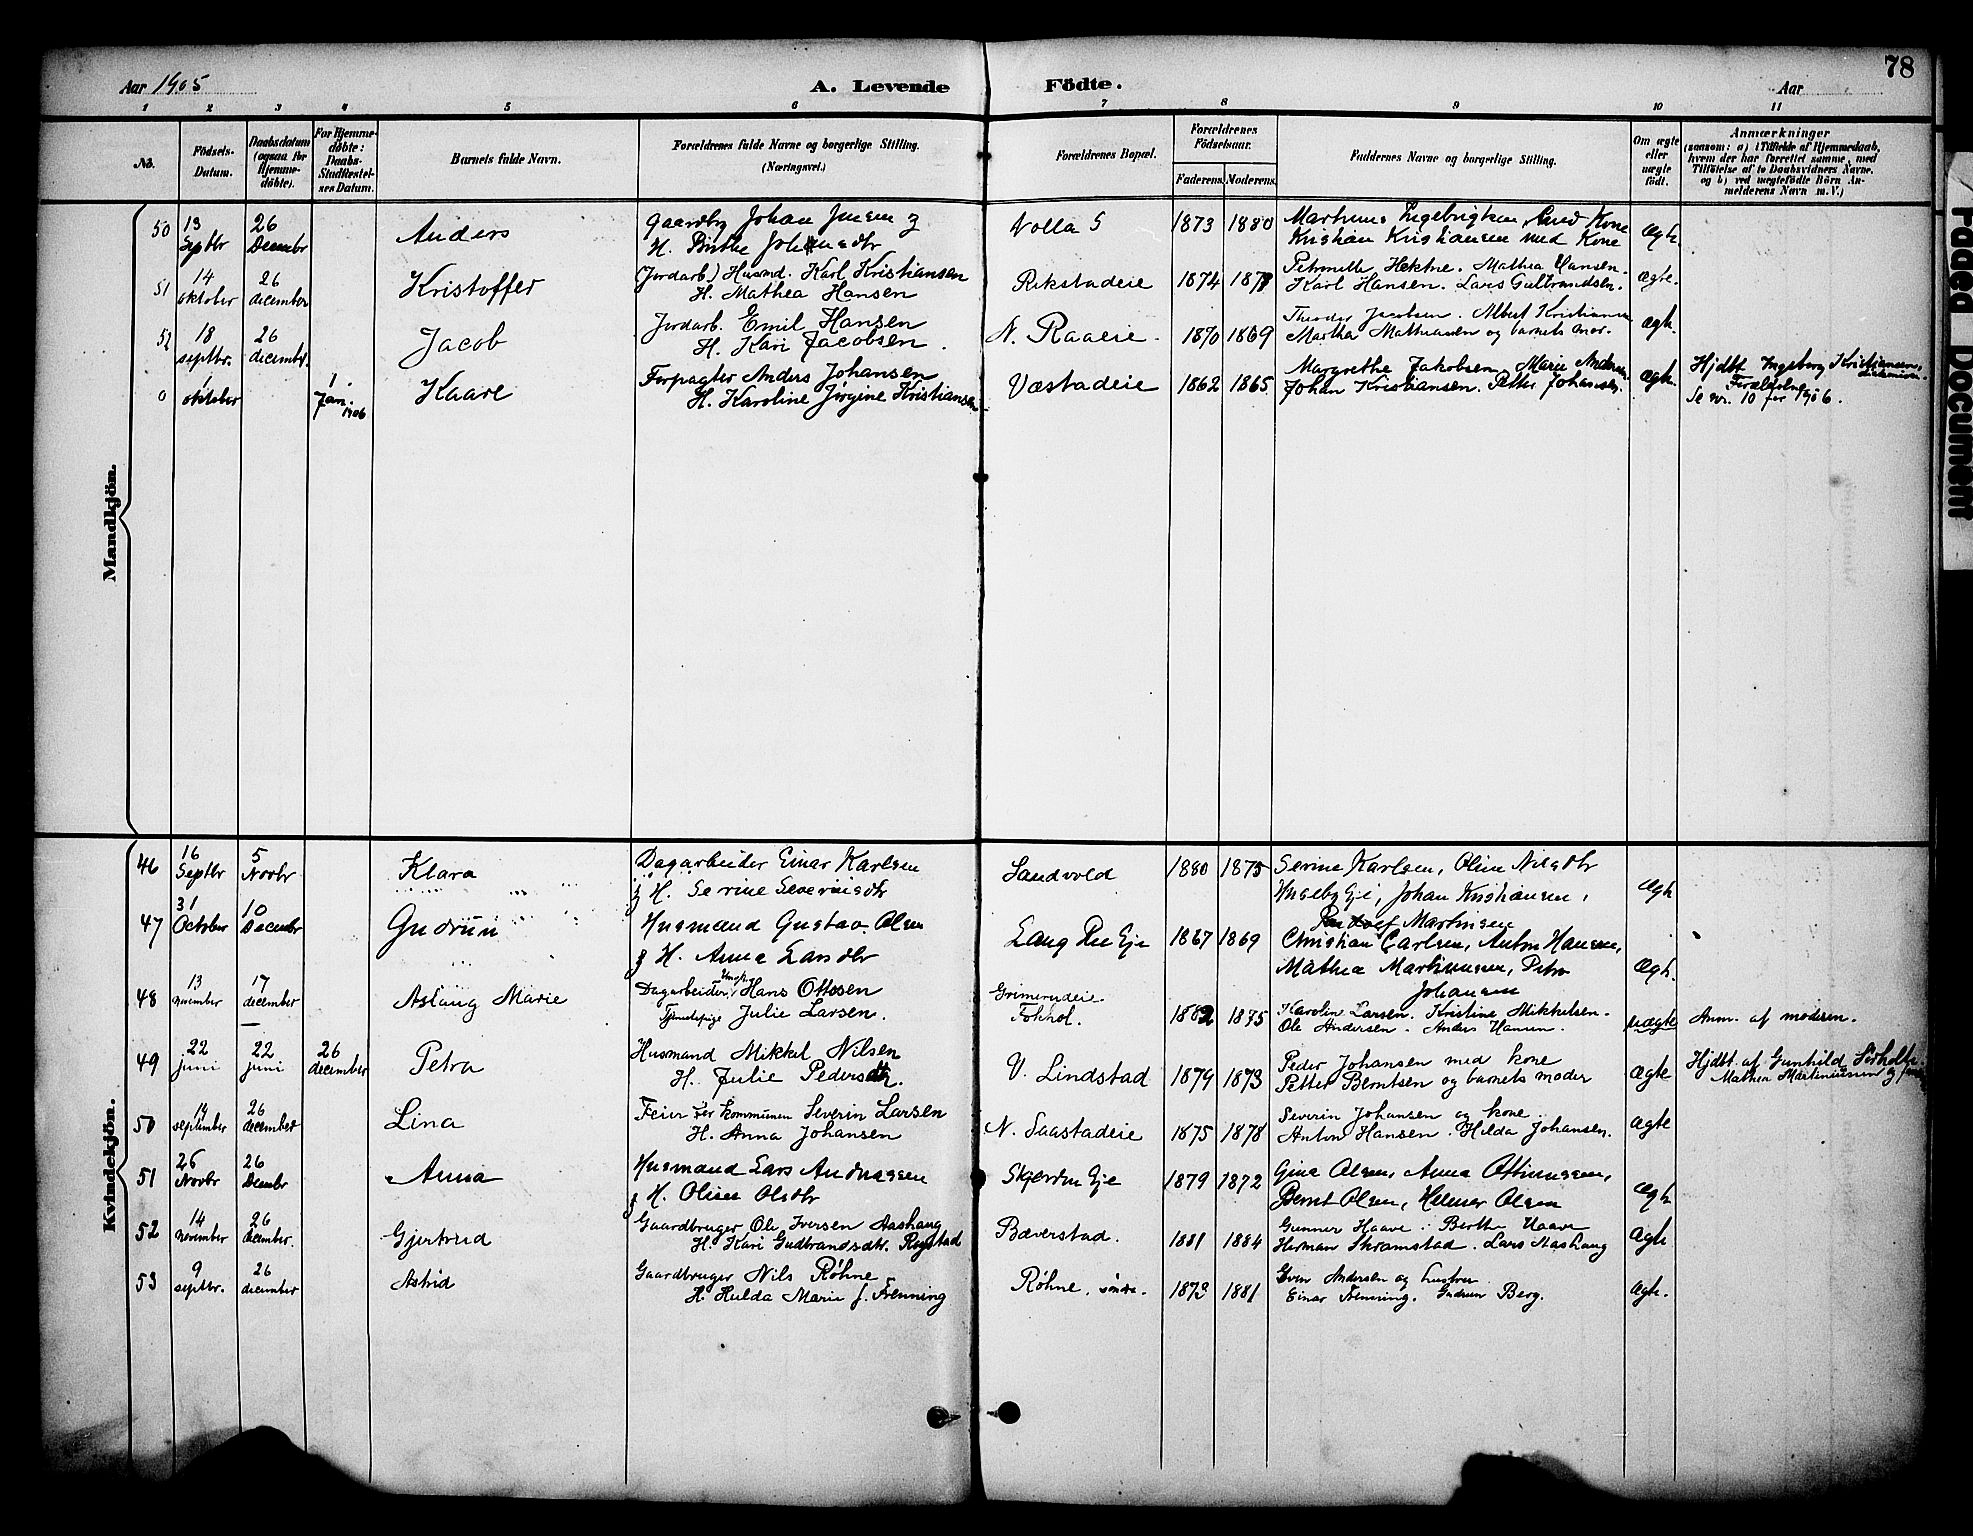 78
Aar 1905
A. Levende Födte.
Aar
1 2 3 4 5 6 7 8 9 10 11
No. Födsels-Datum. Daabsdatum (ogsaa for Hjemme-døbte). For Hjemme-døbte: Daabs-Stadfæstel-ses Datum. Barnets fulde Navn. Forældrenes fulde Navne og borgerlige Stilling. (Næringsvei.) Forældrenes Bopæl. Forældrenes Födselsaar. Faderens. Moderens. Faddernes Navne og borgerlige Stilling. Om ægte eller uægte født. Anmærkninger (saasom: a) i Tilfælde af Hjemmedaab, hvem der har forrettet samme, med Tilføielse af to Daabsvidners Navne, og b) ved uægtefödte Börn An-melderens Navn m. V.)
Mandkjön.
50 13 Septbr 26 Decembr Anders Gaardbr Johan Jensen & H. Birthe Volla S 1873 1880 Kristian Kristiansen med Kone Ægte
51 14 oktober 26 december Kristoffer (Jordarb.) Husmd. Karl Kristiansen H. Mathea Hansen Rikstadeie 1874 1878 Petronelle Hektne. Mathea Hansen. Karl Hansen. Lars Gulbrandsen. Ægte.
52 18 septbr. 26 december. Jacob Jordarb. Emil Hansen H. Kari Jacobsen. N. Raaeie. 1870 1869 Theodor Jacobsen. Albert Kristiansen Martha Mathiasen og barnets mor. Ægte.
0 1 oktober 1. Jan. 1906 Kaare Forpagter Anders Johansen H. Karoline Jørgine Kristiansen Væstadeie 1862 1865 Margrethe Jakobsen. Marie Andersen Johan Kristiansen. Petter Johansen. Ægte. Hjdbt. Ingeborg Kristiansen, Forældrene Se nr. 10 for 1906.
Kvindekjön.
46 16 Septbr 5 Novbr Klara Dagarbeider Einar Karlsen & H. Serine Severinsdtr Sandvold 1880 1875 Serine Karlsen, Oline Nilsdtr Johan Kristiansen, Martinsen Ægte
47 31 October 10 Decembr Gudrun Husmand Gustav Olsen & H. Anna Larsdtr Lang Rue Eje 1867 1869 Christian Carlsen, Anton Hansen, Mathea Martinusen, Petra Johansen Ægte.
48 13 november 17 december Aslaug Marie Dagarbeider, Ungk. Hans Ottosen Tjenestepige Julie Larsen. Grimerudeie. Fokhol. 1882 1875 Karolin Larsen. Kristine Mikkelsen. Ole Andersen. Anders Hansen. uægte Anm. af moderen.
49 22 juni 22 juni 26 december Petra Husmand Mikkel Nilsen H. Julie Pedersdtr. V. Lindstad 1879 1873 Peder Johansen med kone Petter Berntsen og barnets moder Ægte Hjdbt. af Gunhild Sørholte. Mathea Martinussen og
50 14 september 26 december Lina Feier for kommunen Severin Larsen H. Anna Johansen N. Saastadeie 1875 1878 Severin Johansen og kone. Anton Hansen. Hilda Johansen. Ægte
51 26 Novbr 26 Decmbr Anna Husmand Lars Andreassen & H. Oline Olsdtr Skjerden Eje 1879 1872 Gina Olsen, Anna Ottinussen, Bernt Olsen, Helmer Olsen Ægte
52 14 november 26 december. Gjertrud Gaardbruger Ole Iversen Aashaug H. Kari Gudbrandsdtr. Rogstad Bæverstad. 1881 1884 Gunner Haave. Berthe Haave Herman Skramstad. Lars Aashaug Ægte
53 9 septbr. 26 december Astrid Gaardbruger Nils Røhne H. Hulda Marie f. Frenning Røhne, søndre. 1873 1881 Even Andersen og hustru Einar Frenning. Gudrun Berg. Ægte.
Faded Document